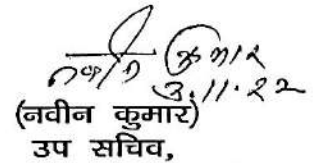 नवीन कुमार
3.11.22
(नवीन कुमार)
उप सचिव,